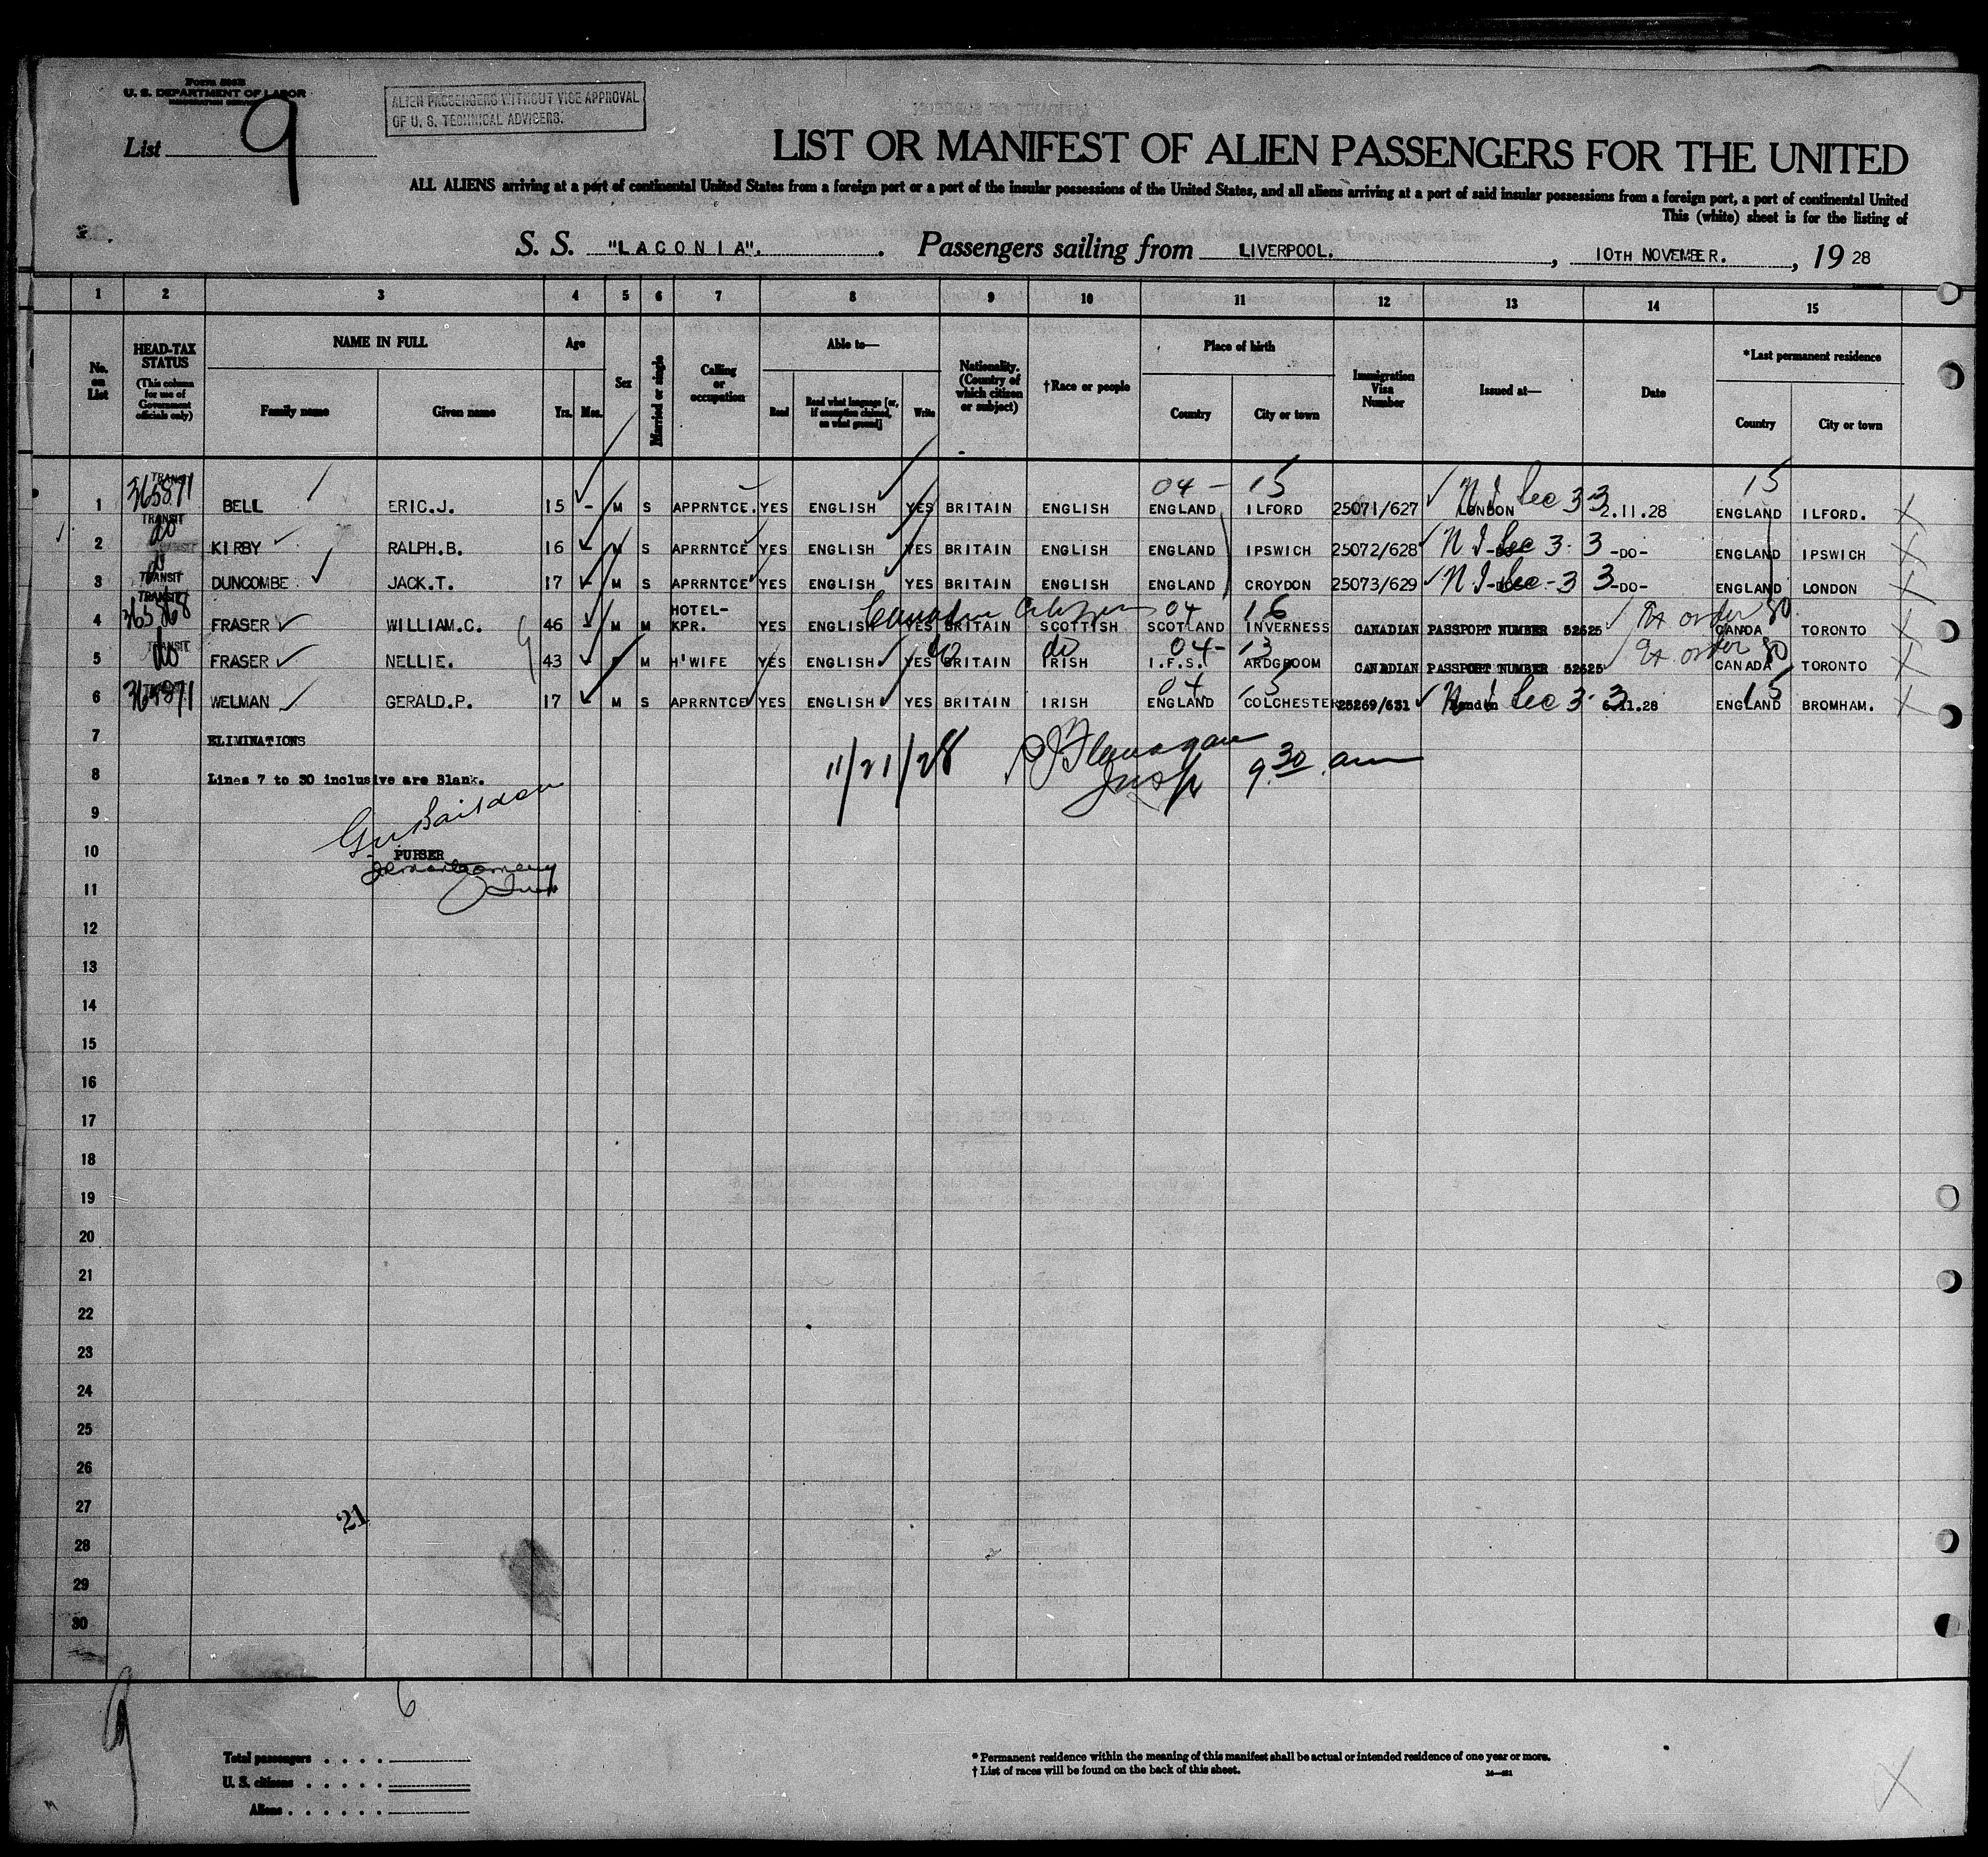 U. S. DEPARTMENT OF LABOR
IMMIGRATION SERVICE
ALIEN PASSENGERS WITHOUT VICE APPROVAL
OF U. S. TECHNICAL ADVISERS.
List 9
LIST OR MANIFEST OF ALIEN PASSENGERS FOR THE UNITED
ALL ALIENS arriving at a port of continental United States from a foreign port or a port of the insular possessions of the United States, and all aliens arriving at a port of said insular possessions from a foreign port, a port of continental United
This (white) sheet is for the listing of
S. S. "LACONIA". Passengers sailing from LIVERPOOL. , 10TH NOVEMBER. , 19 28
1 2 3 4 5 6 7 8 9 10 11 12 13 14 15
No. on List
HEAD-TAX STATUS (This column for use of Government officials only)
NAME IN FULL
Family name Given name
Age
Yrs. Mos.
Sex
Married or single
Calling or occupation
Able to—
Read Read what language [or, if exemption claimed, on what ground] Write
Nationality. (Country of which citizen or subject)
†Race or people
Place of birth
Country City or town
Immigration Visa Number
Issued at—
Date
*Last permanent residence
Country City or town
04 - 15 15
1 TRANSIT 365871 BELL ERIC.J. 15 - M S APPRNTCE. YES ENGLISH YES BRITAIN ENGLISH ENGLAND ILFORD 25071/627 LONDON N I Sec 3-3 2.11.28 ENGLAND ILFORD.
2 TRANSIT do KIRBY RALPH.B. 16 M S APRRNTCE YES ENGLISH YES BRITAIN ENGLISH ENGLAND IPSWICH 25072/628 N I Sec 3-3 -DO- ENGLAND IPSWICH
3 TRANSIT do DUNCOMBE JACK.T. 17 - M S APRRNTCE YES ENGLISH YES BRITAIN ENGLISH ENGLAND CROYDON 25073/629 N I Sec-3 3 -DO- ENGLAND LONDON
Canadian Citizen 04 16 Ex order 80
4 TRANSIT 365868 FRASER WILLIAM.C. 46 - M M HOTEL-KPR. YES ENGLISH YES BRITAIN SCOTTISH SCOTLAND INVERNESS CANADIAN PASSPORT NUMBER 52625 CANADA TORONTO
do do 04- 13 Ex order 80
5 TRANSIT do FRASER NELLIE. 43 M H'WIFE YES ENGLISH YES BRITAIN IRISH I.F.S. ARDGROOM CANADIAN PASSPORT NUMBER 52625 CANADA TORONTO
04 15 15
6 365871 WELMAN GERALD.P. 17 M S APRRNTCE YES ENGLISH YES BRITAIN IRISH ENGLAND COLCHESTER 25269/631 London N I Sec 3-3 6.11.28 ENGLAND BROMHAM.
7 ELIMINATIONS
11/21/28 Flanagan Insp 9.30 am
8 Lines 7 to 30 inclusive are Blank.
9
10 PURSER
Montgomery
11
12
13
14
15
16
17
18
19
20
21
22
23
24
25
26
27
21
28
29
30
9
6
Total passengers . . . .
U. S. citizens . . . . .
Aliens . . . . . .
* Permanent residence within the meaning of this manifest shall be actual or intended residence of one year or more.
† List of races will be found on the back of this sheet.